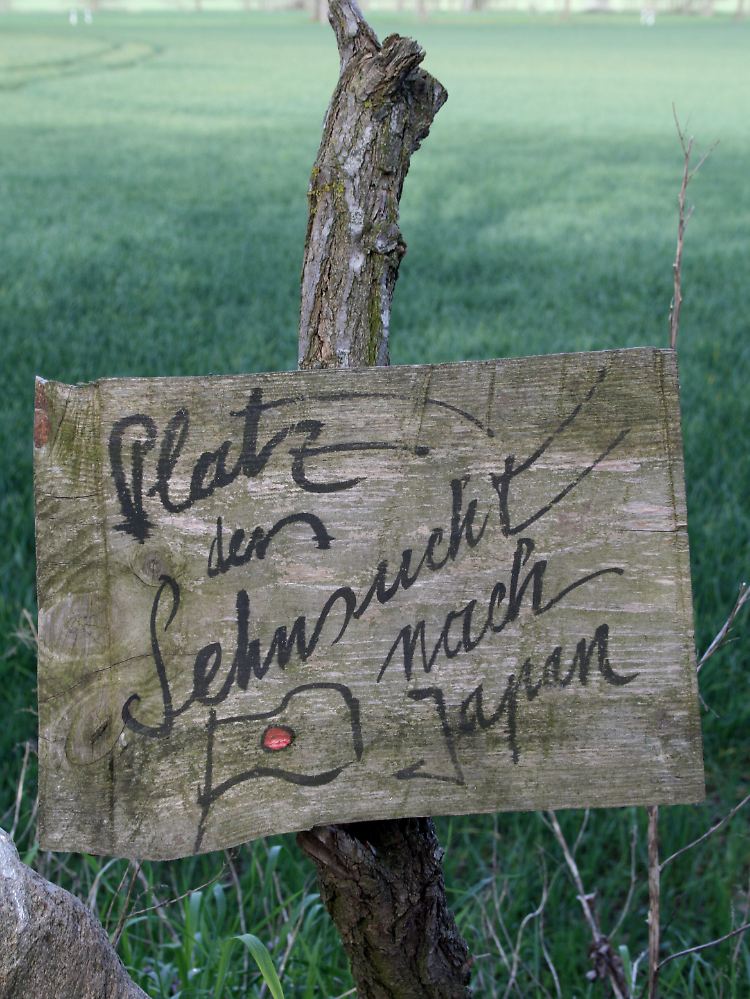 Platz
der
Sehnsucht
nach
Japan